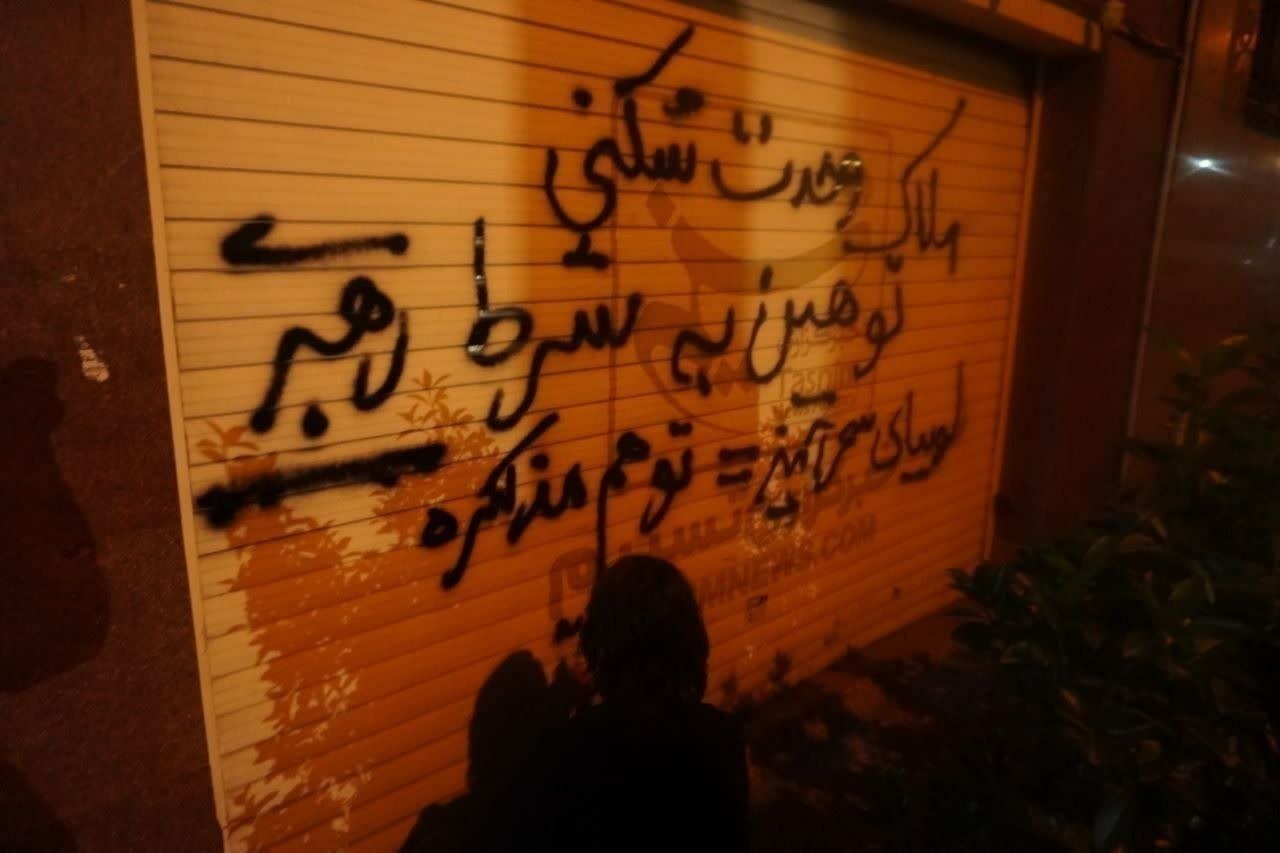 ملاک وحدت شکنی
توهین به سرط رهبر
لوبیای سحرآمیز = توهم مذاکره
Tasnim
MNEWS.COM